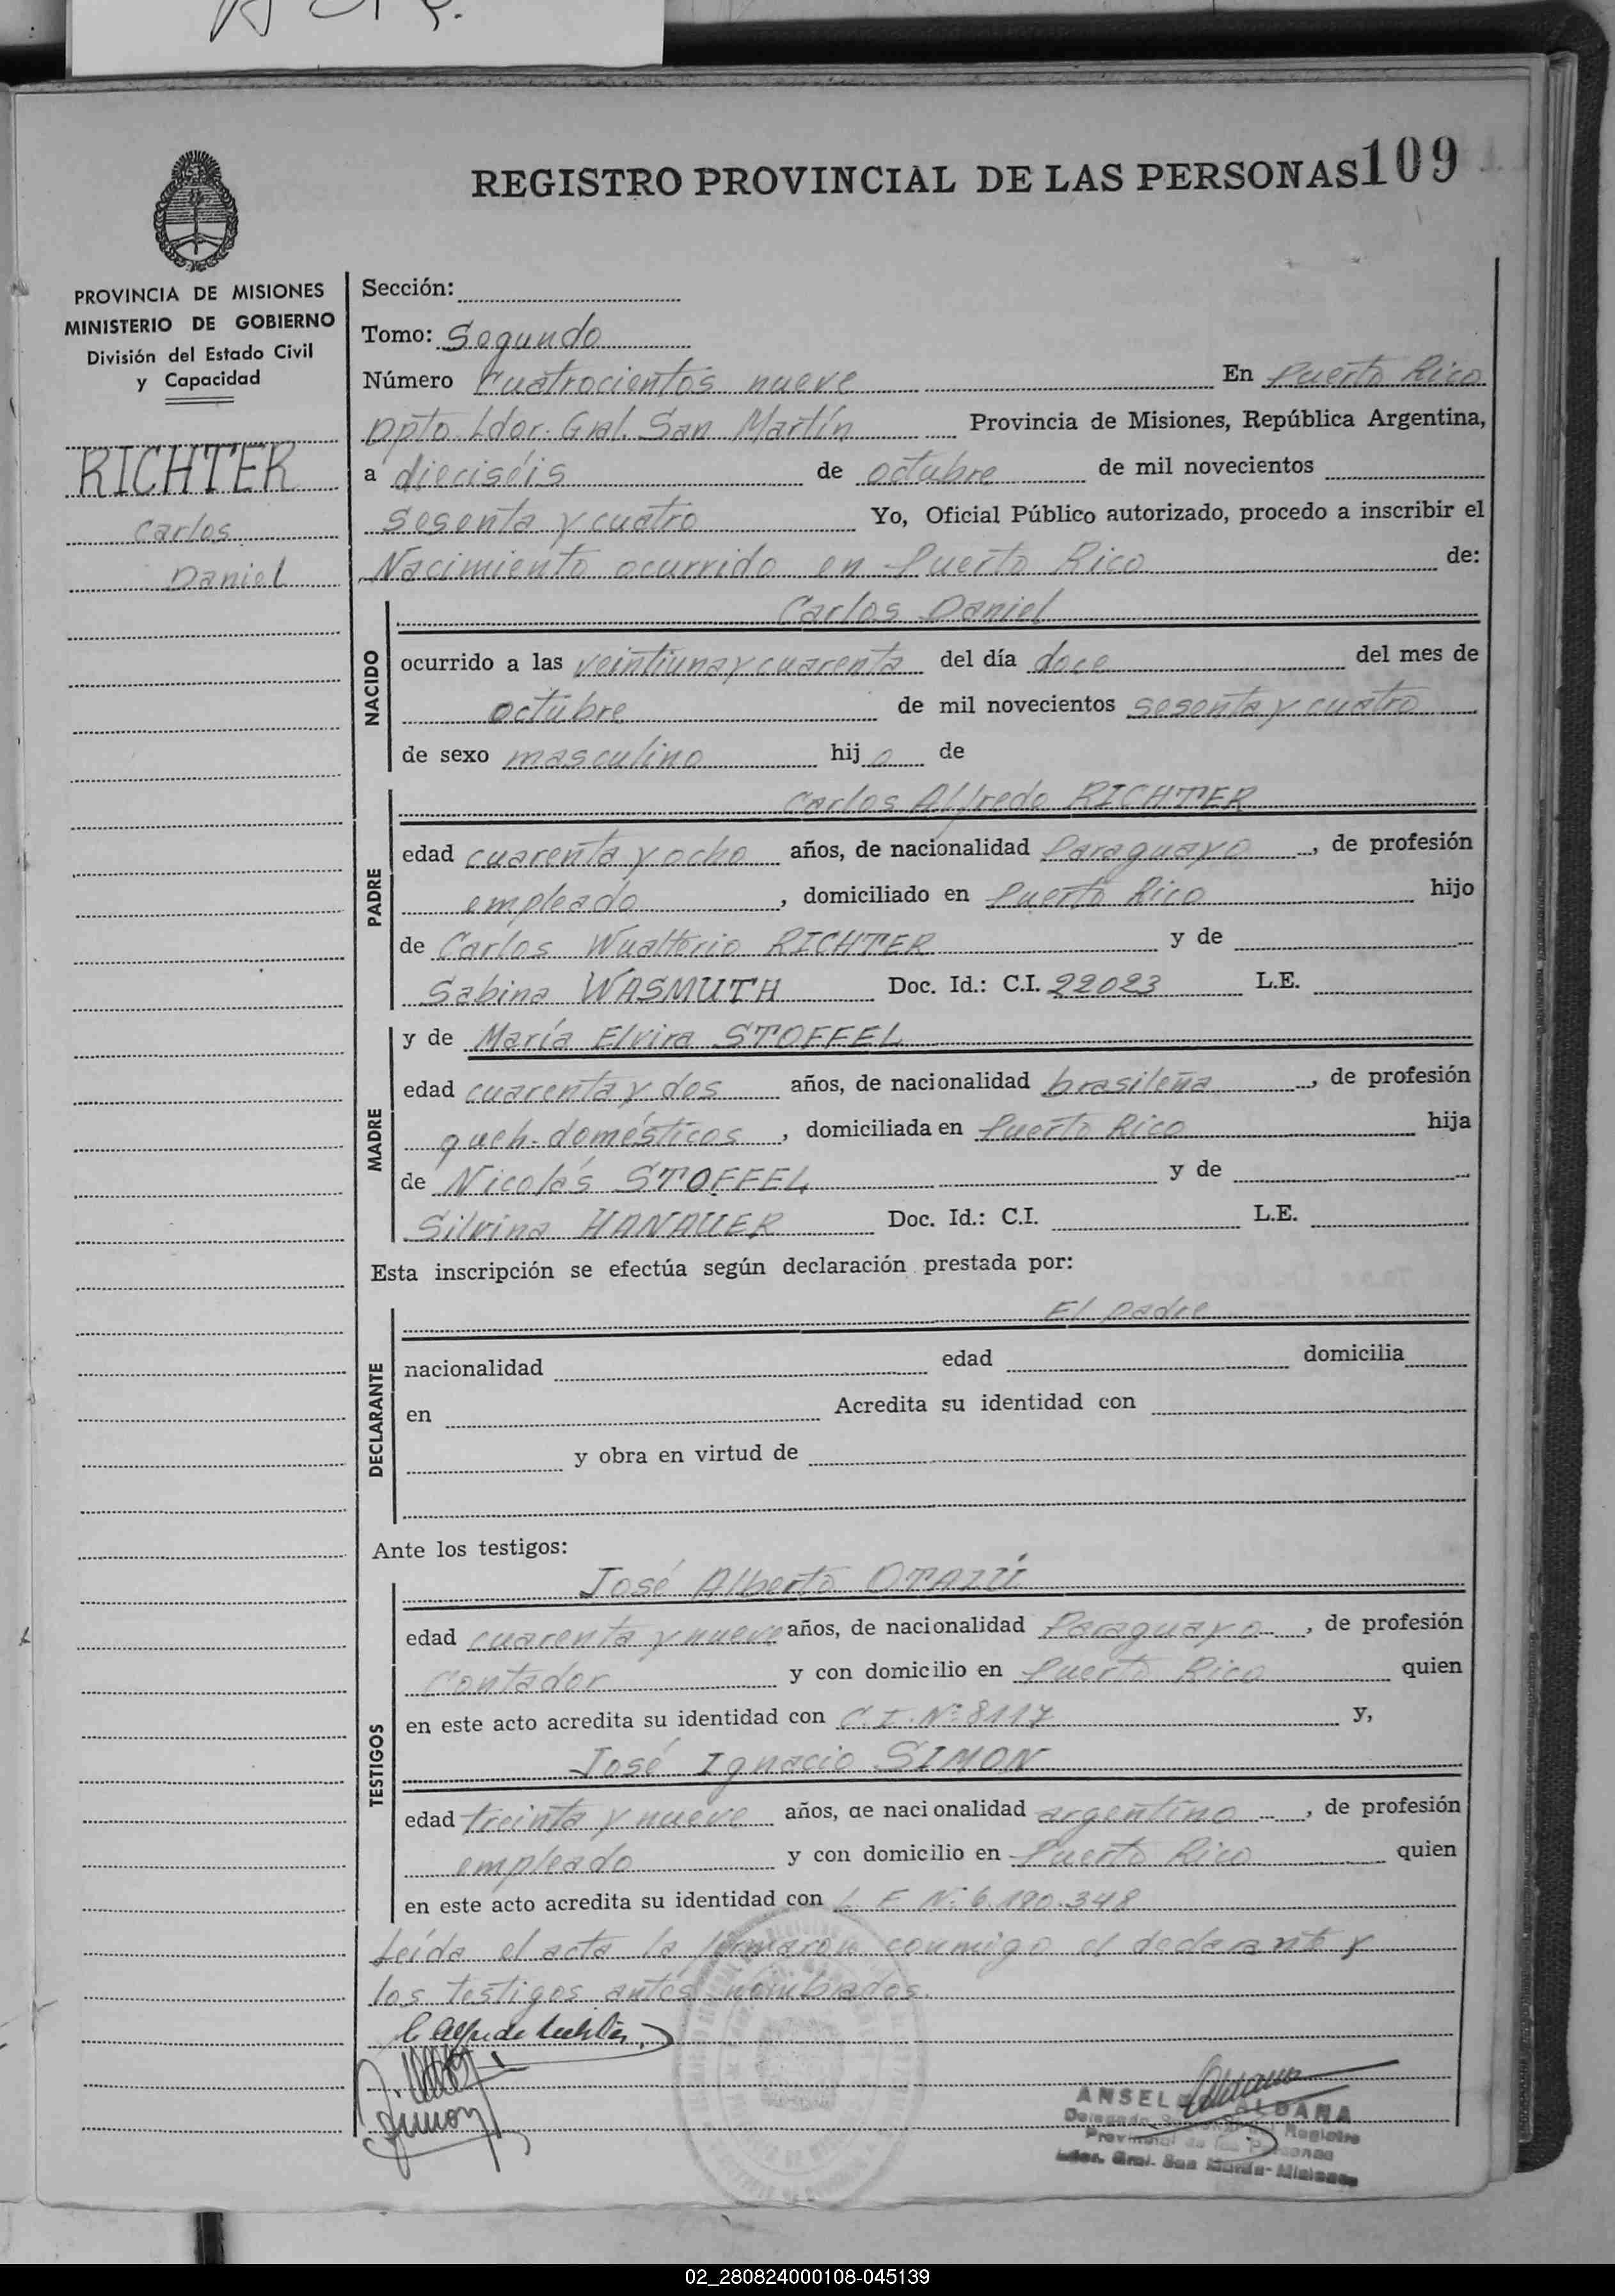 REGISTRO PROVINCIAL DE LAS PERSONAS 109
PROVINCIA DE MISIONES
MINISTERIO DE GOBIERNO
División del Estado Civil
y Capacidad
RICHTER
Carlos
Daniel
Sección:
Tomo: Segundo
Número Cuatrocientos nueve En Puerto Rico
Dpto. Ldor. Gral. San Martín Provincia de Misiones, República Argentina,
a dieciséis de octubre de mil novecientos
sesenta y cuatro Yo, Oficial Público autorizado, procedo a inscribir el
Nacimiento ocurrido en Puerto Rico de:
NACIDO
Carlos Daniel
ocurrido a las veintiuna y cuarenta del día doce del mes de
octubre de mil novecientos sesenta y cuatro
de sexo masculino hij o de
PADRE
Carlos Alfredo RICHTER
edad cuarenta y ocho años, de nacionalidad Paraguayo, de profesión
empleado, domiciliado en Puerto Rico hijo
de Carlos Wualterio RICHTER y de
Sabina WASMUTH Doc. Id.: C.I. 22023 L.E.
MADRE
y de María Elvira STOFFEL
edad cuarenta y dos años, de nacionalidad brasileña, de profesión
queh. domésticos, domiciliada en Puerto Rico hija
de Nicolás STOFFEL y de
Silvina HANAUER Doc. Id.: C.I. L.E.
Esta inscripción se efectúa según declaración prestada por:
DECLARANTE
El padre
nacionalidad edad domicilia
en Acredita su identidad con
y obra en virtud de
Ante los testigos:
TESTIGOS
José Alberto OTAZÚ
edad cuarenta y nueve años, de nacionalidad Paraguayo, de profesión
Contador y con domicilio en Puerto Rico quien
en este acto acredita su identidad con C.I. Nº 8117 y,
José Ignacio SIMON
edad treinta y nueve años, de nacionalidad argentino, de profesión
empleado y con domicilio en Puerto Rico quien
en este acto acredita su identidad con L.E Nº 6.190.348
Leída el acta la firmaron conmigo el declarante y
los testigos antes nombrados.
C Alfredo Richter
Simon
ANSEL ALDANA
Delegado Registro
Provincial de las Personas
Ldor. Gral. San Martín - Misiones
02_280824000108-045139